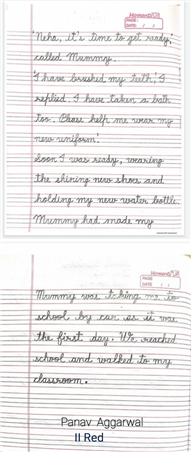 Homework
PAGE:
DATE: / /
'Neha, it's time to get ready,'
called Mummy.
'I have brushed my teeth,' I
replied. I have taken a bath
too. Please help me wear my
new uniform'.
Soon I was ready, wearing
the shining new shoes and
holding my new water bottle.
Mummy had made my
PAGE:
DATE: / /
Mummy was taking me to
school by car as it was
the first day. We reached
school and walked to my
classroom.
Panav Aggarwal
II Red